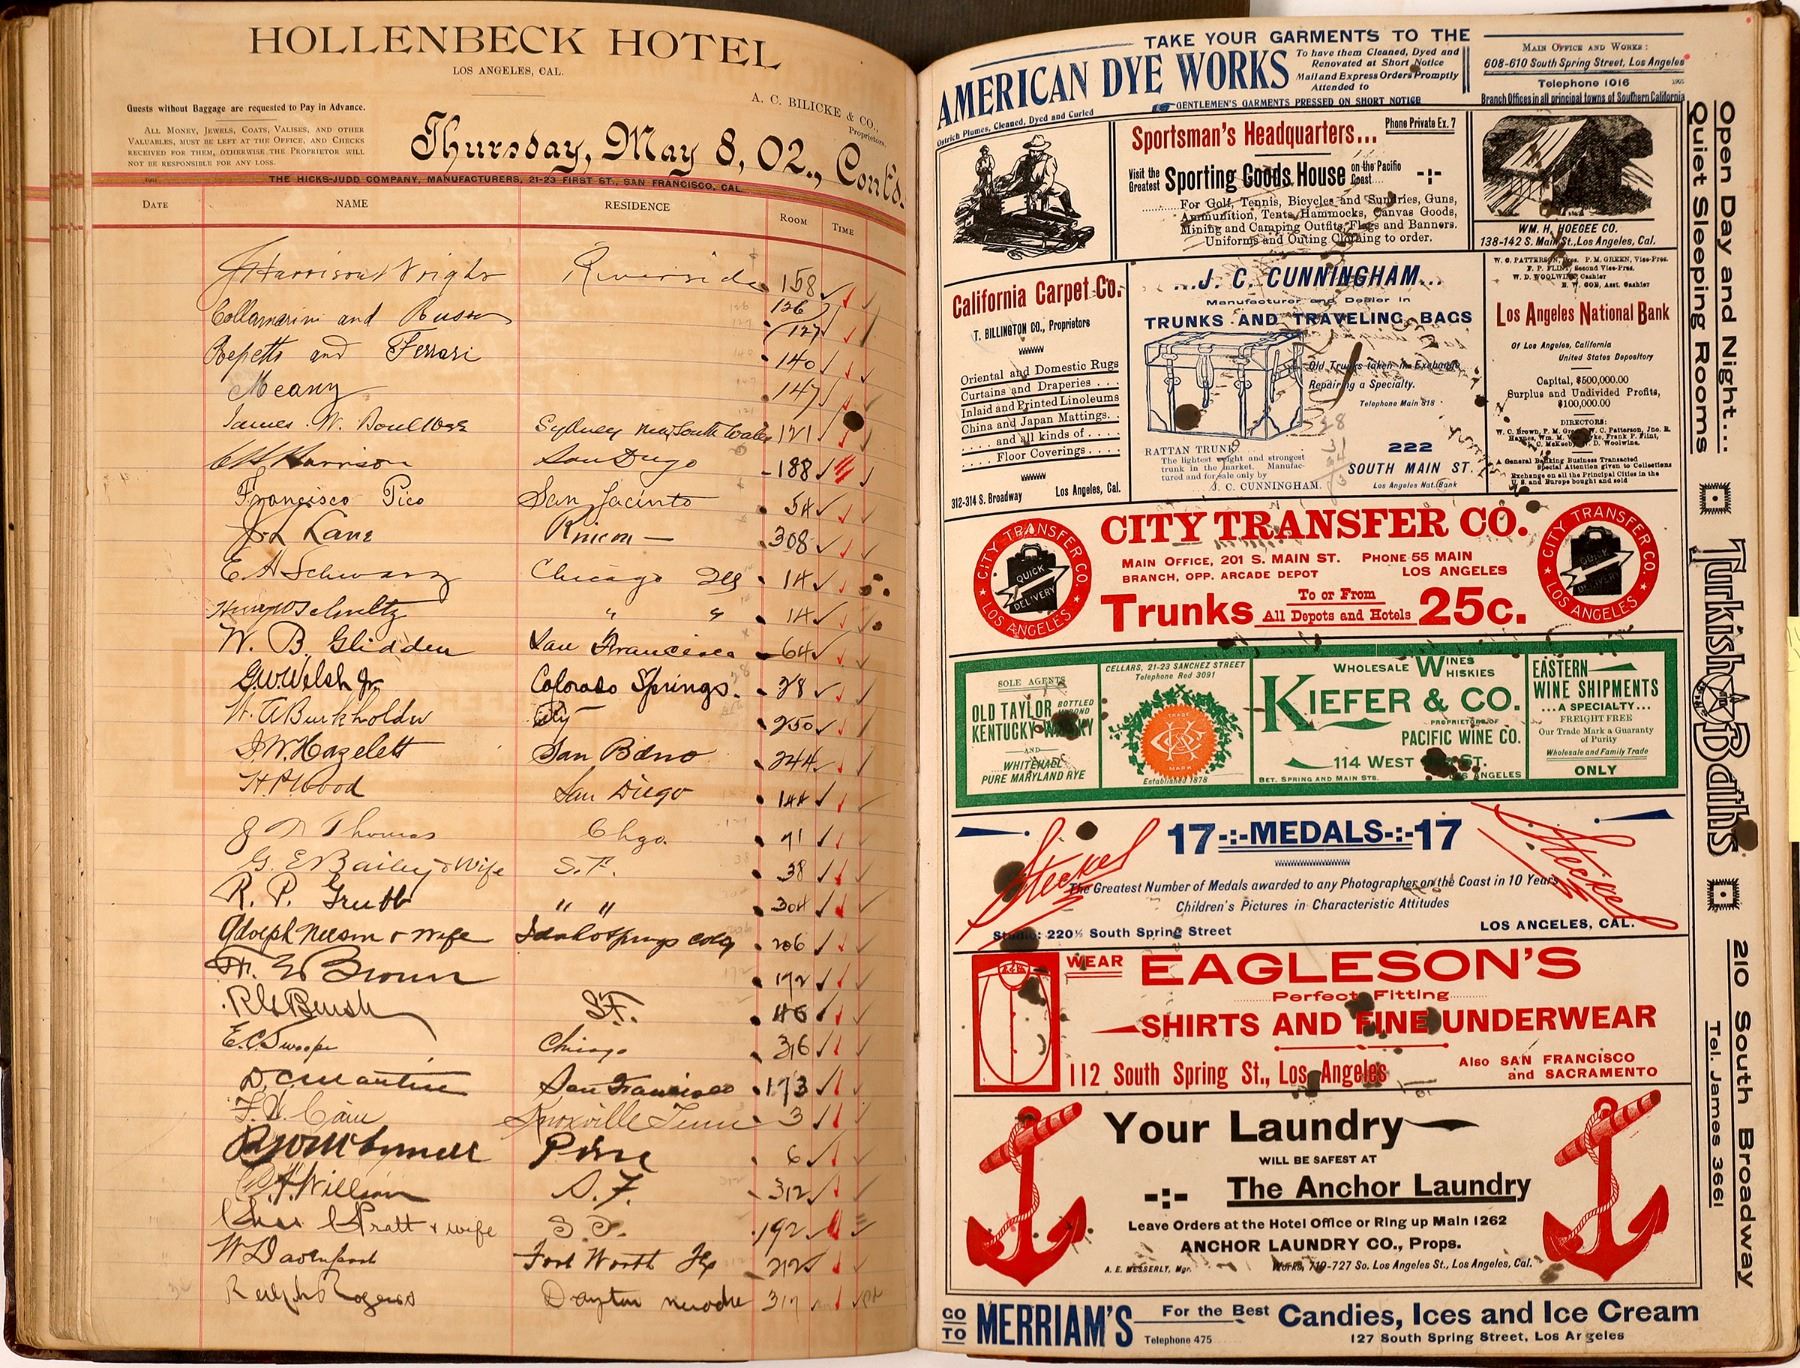 HOLLENBECK HOTEL
LOS ANGELES, CAL.
A. C. BILICKE & CO.,
Proprietors.
Guests without Baggage are requested to Pay in Advance.
ALL MONEY, JEWELS, COATS, VALISES, AND OTHER
VALUABLES, MUST BE LEFT AT THE OFFICE, AND CHECKS
RECEIVED FOR THEM, OTHERWISE THE PROPRIETOR WILL
NOT BE RESPONSIBLE FOR ANY LOSS.
Thursday, May 8, 02., Cont'd.
THE HICKS-JUDD COMPANY, MANUFACTURERS, 21-23 FIRST ST., SAN FRANCISCO, CAL.
DATE NAME RESIDENCE ROOM TIME
J Harrison Wright Riverside 158
Collamarini and Russo 126
127
Repetto and Ferrari 140
Meany 147
James W. Sydney New South Wales 121
Harrison San Diego 188
Francisco Pico San Jacinto 54
Lane Rincon 308
E A Schwarz Chicago Ills 14
Schultz " " 14
W. B. Glidden San Francisco 64
G.W. Welsh Jr. Colorado Springs. 28
W. A Burkholder City 250
J.W. Hazelett San Bdno 244
H.P. Wood San Diego 144
J N Thomas Chgo. 71
G. E. Bailey & Wife S.F. 38
R. P. Grubb " " 304
Adolph Nelson & wife Idaho Springs Colo 206
E Brown 172
S.F. 46
E.C. Swoope Chicago 316
D.C. Martin San Francisco 173
F. Cain Knoxville Tenn 3
6
Willson S.F. 312
Chas Pratt & wife S.F. 192
W Davenport Fort Worth Tx 212
Ralph Rogers Dayton 317
TAKE YOUR GARMENTS TO THE
AMERICAN DYE WORKS
To have them Cleaned, Dyed and
Renovated at Short Notice
Mail and Express Orders Promptly
Attended to
GENTLEMEN'S GARMENTS PRESSED ON SHORT NOTICE
Ostrich Plumes, Cleaned, Dyed and Curled
MAIN OFFICE AND WORKS:
608-610 South Spring Street, Los Angeles
Telephone 1016
Branch Offices in all principal towns of Southern California
Sportsman's Headquarters...
Phone Private Ex. 7
Visit the
Greatest
Sporting Goods House
on the Pacific
Coast
For Golf, Tennis, Bicycles and Sundries, Guns,
Ammunition, Tents, Hammocks, Canvas Goods,
Mining and Camping Outfits, Flags and Banners.
Uniforms and Outing Clothing to order.
WM. H. HOEGEE CO.
138-142 S. Main St., Los Angeles, Cal.
California Carpet Co.
T. BILLINGTON CO., Proprietors
Oriental and Domestic Rugs
Curtains and Draperies . . . .
Inlaid and Printed Linoleums
China and Japan Mattings. . .
. . . . and all kinds of . . . .
. . . Floor Coverings . . . .
312-314 S. Broadway Los Angeles, Cal.
J. C. CUNNINGHAM...
Manufacturer and Dealer in
TRUNKS AND TRAVELING BAGS
Old Trunks taken in Exchange
Repairing a Specialty.
Telephone Main 818
222
SOUTH MAIN ST.
Los Angeles Nat. Bank
RATTAN TRUNK
The lightest weight and strongest
trunk in the market. Manufac-
tured and for sale only by
J. C. CUNNINGHAM.
W. C. PATTERSON, Pres. P. M. GREEN, Vice-Pres.
F. P. FLINT, Second Vice-Pres.
W. D. WOOLWINE, Cashier
E. W. COE, Asst. Cashier
Los Angeles National Bank
Of Los Angeles, California
United States Depository
Capital, $500,000.00
Surplus and Undivided Profits,
$100,000.00
DIRECTORS:
A General Banking Business Transacted
Special Attention given to Collections
Exchange on all the Principal Cities in the
U. S. and Europe bought and sold
CITY TRANSFER CO.
LOS ANGELES
QUICK
DELIVERY
CITY TRANSFER CO.
MAIN OFFICE, 201 S. MAIN ST. PHONE 55 MAIN
BRANCH, OPP. ARCADE DEPOT LOS ANGELES
Trunks To or From
All Depots and Hotels 25c.
CITY TRANSFER CO.
LOS ANGELES
QUICK
DELIVERY
SOLE AGENTS
OLD TAYLOR BOTTLED
IN BOND
KENTUCKY WHISKY
AND
WHITEHALL
PURE MARYLAND RYE
CELLARS, 21-23 SANCHEZ STREET
Telephone Red 3091
TRADE
MARK
Established 1878
WHOLESALE WINES
WHISKIES
KIEFER & CO.
PROPRIETORS OF
PACIFIC WINE CO.
114 WEST ST.
BET. SPRING AND MAIN STS. LOS ANGELES
EASTERN
WINE SHIPMENTS
...A SPECIALTY...
FREIGHT FREE
Our Trade Mark a Guaranty
of Purity
Wholesale and Family Trade
ONLY
Steckel
17-:-MEDALS-:-17
Steckel
The Greatest Number of Medals awarded to any Photographer on the Coast in 10 Years
Children's Pictures in Characteristic Attitudes
Studio: 220½ South Spring Street LOS ANGELES, CAL.
WEAR EAGLESON'S
Perfect Fitting
SHIRTS AND FINE UNDERWEAR
112 South Spring St., Los Angeles
Also SAN FRANCISCO
and SACRAMENTO
Your Laundry
WILL BE SAFEST AT
-:- The Anchor Laundry
Leave Orders at the Hotel Office or Ring up Main 1262
ANCHOR LAUNDRY CO., Props.
A. E. MESSERLY, Mgr. Works, 719-727 So. Los Angeles St., Los Angeles, Cal.
GO
TO
MERRIAM'S
For the Best Candies, Ices and Ice Cream
Telephone 475 127 South Spring Street, Los Angeles
Open Day and Night...
Quiet Sleeping Rooms
Turkish Baths
210 South Broadway
Tel. James 3661